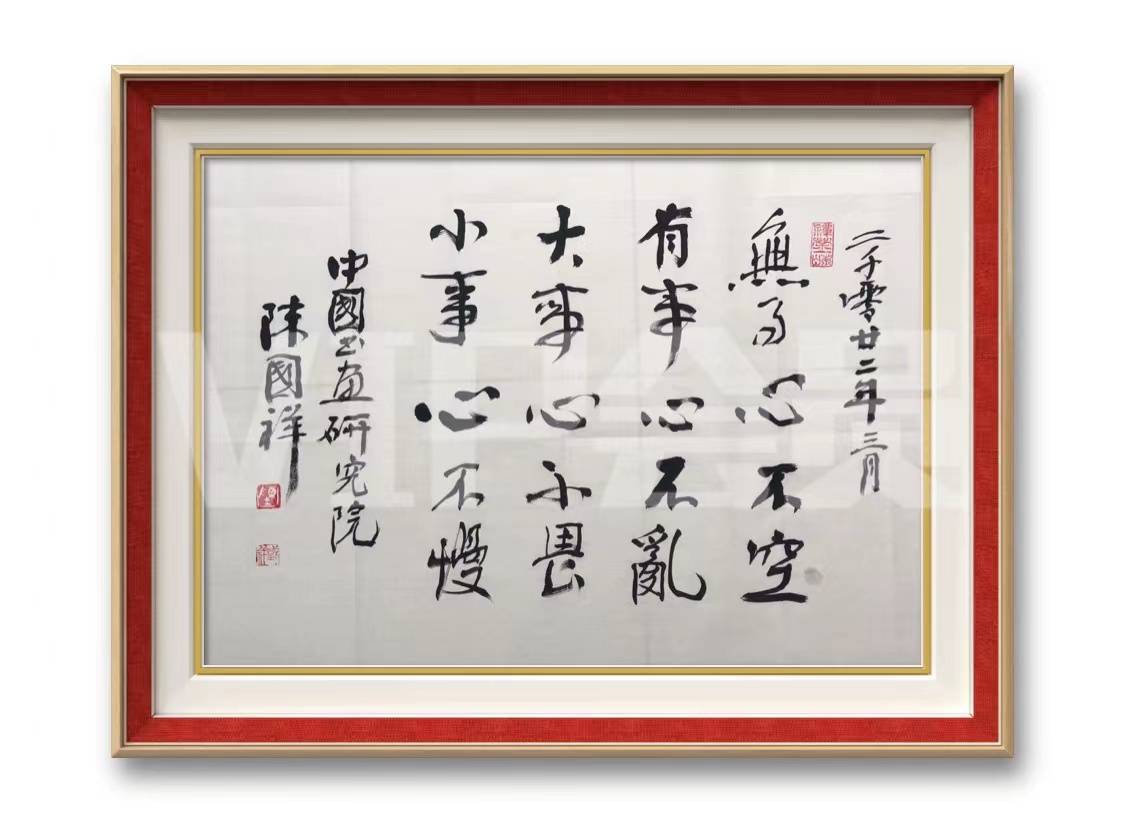 二千零廿二年三月
無事心不空
有事心不亂
大事心不畏
小事心不慢
中國书画研究院
陈國祥
VIP会员